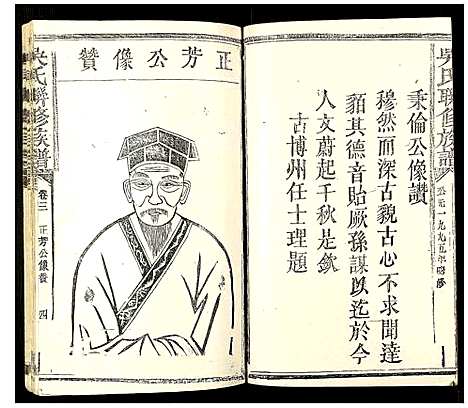 吳氏聯修族譜
公元一九九五年啓修
秉倫公像讚
穆然而深古貌古心不求聞達
貊其德音貽厥孫謀以迄於今
人文蔚起千秋是欽
古博州任士理題
正芳公像贊
吳氏聯修族譜
卷三
正芳公像賛
四